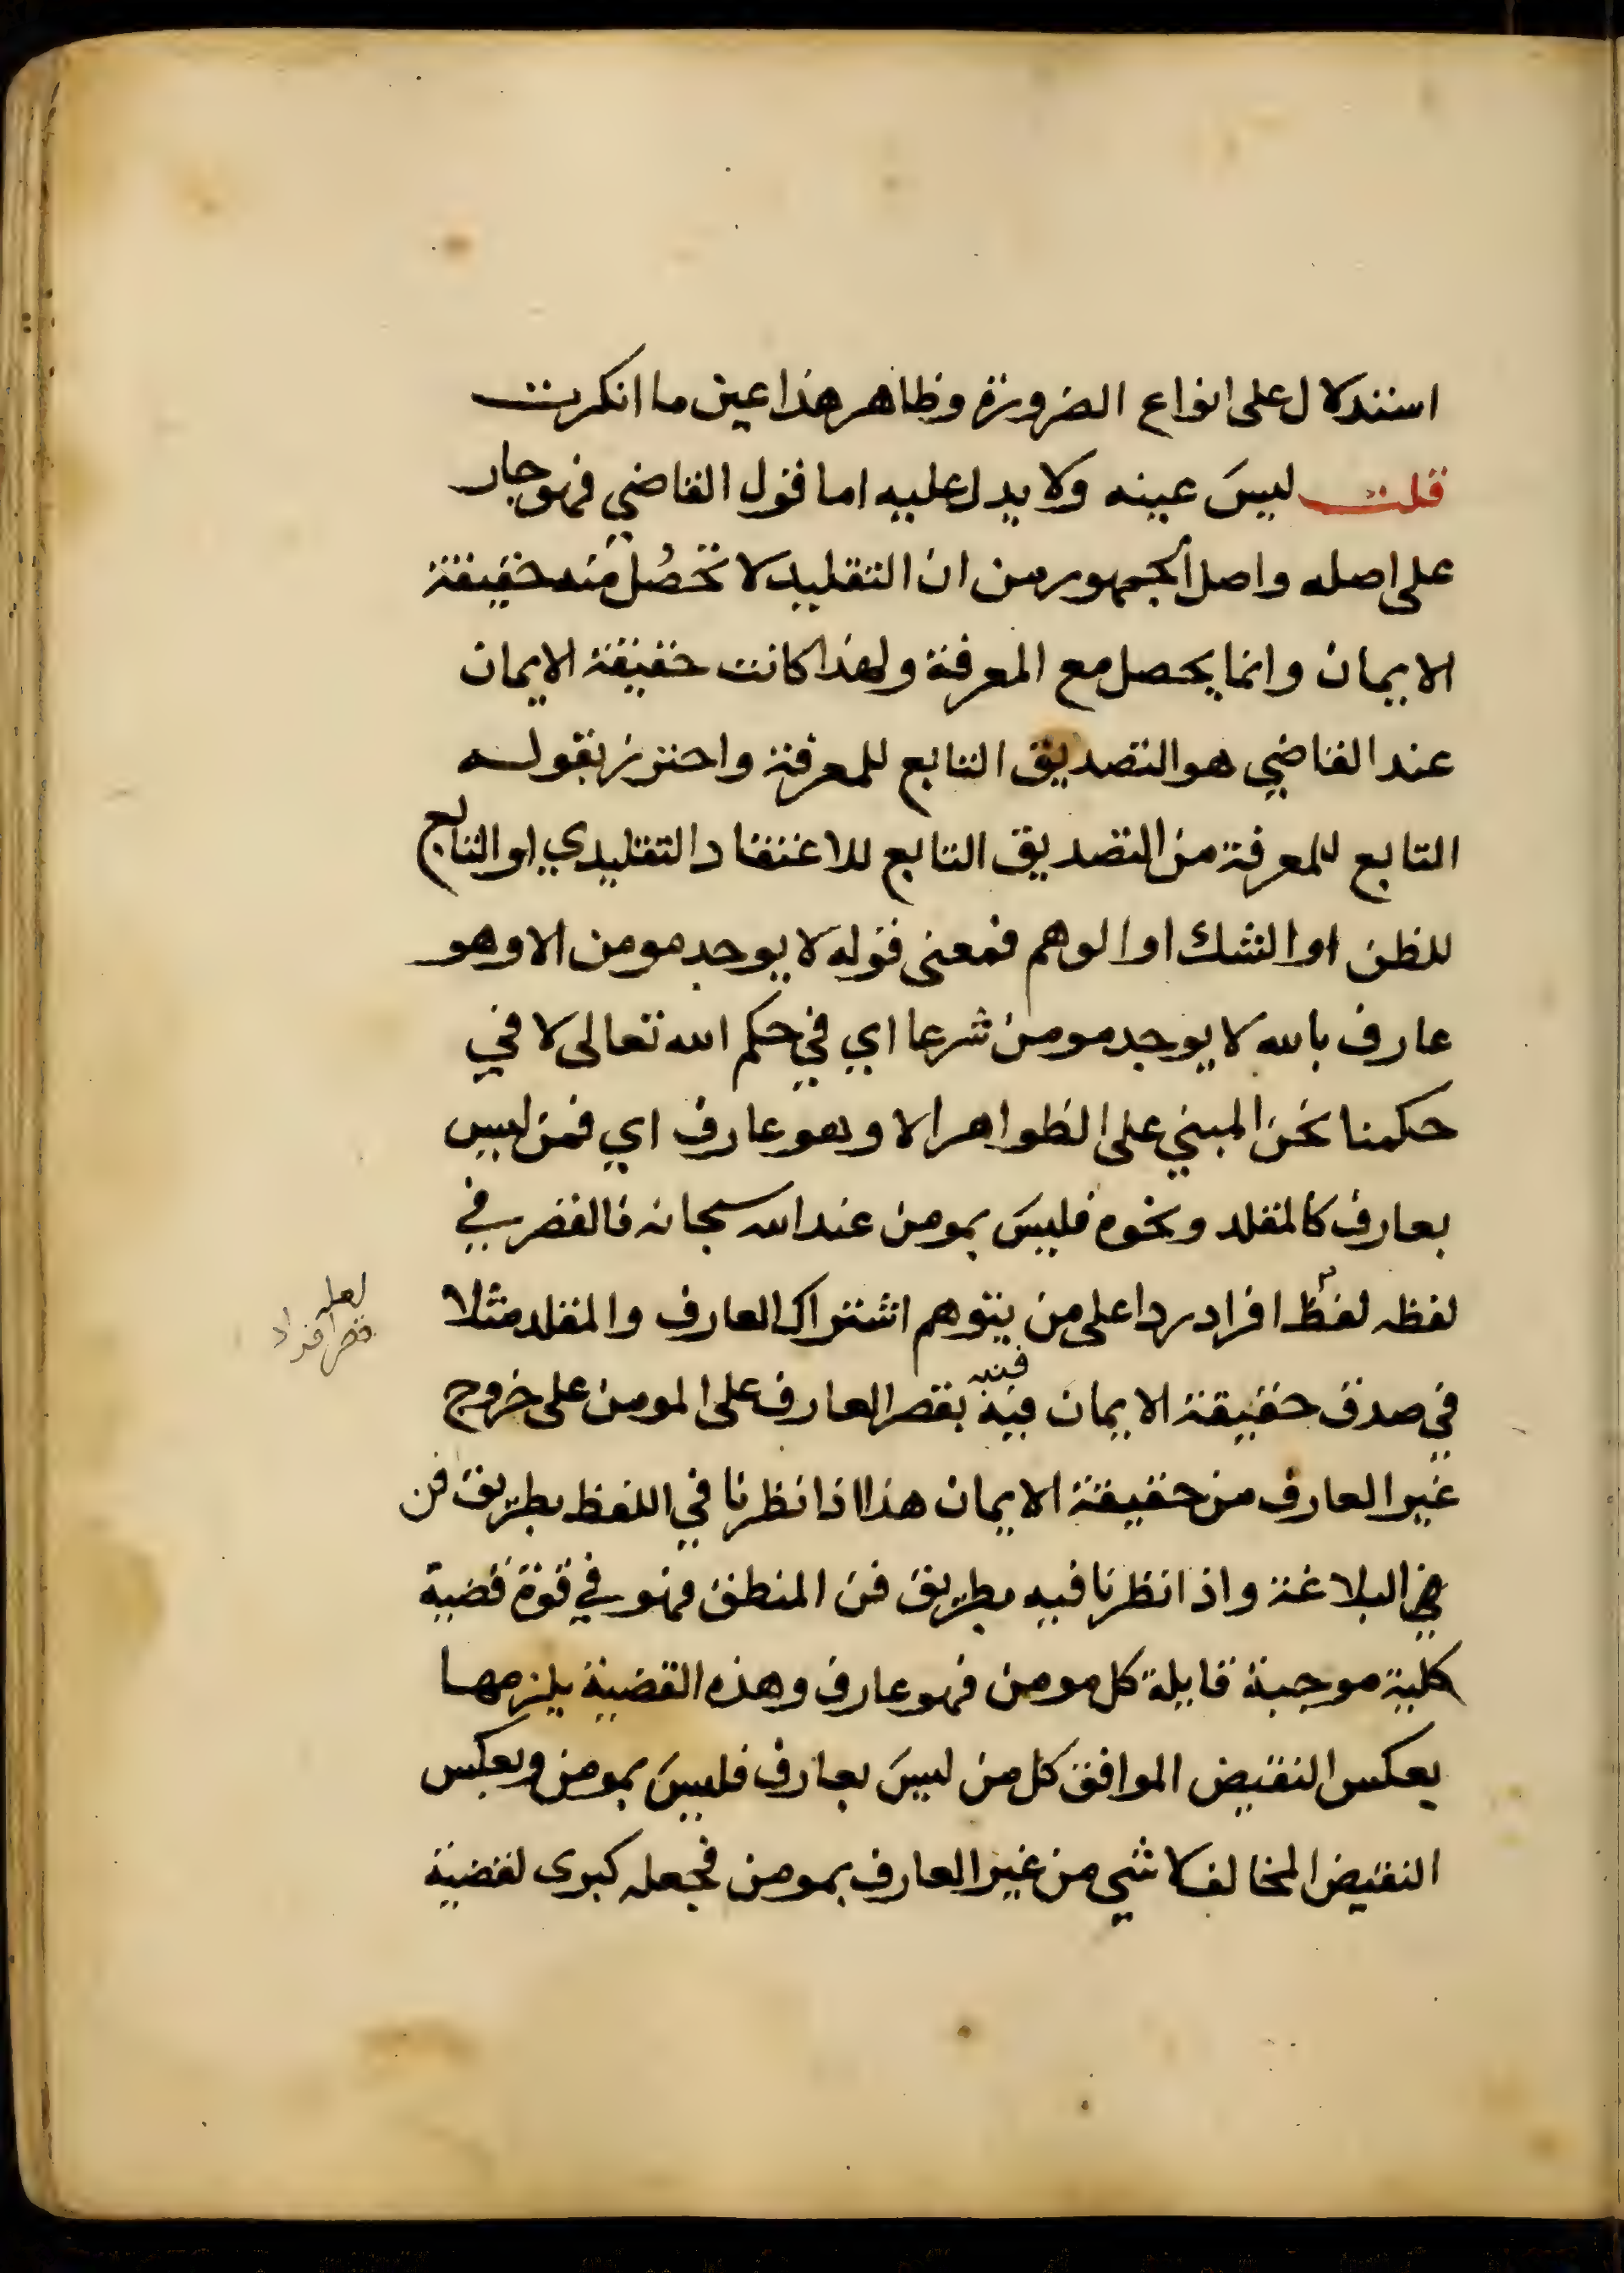 استدلال على انواع الضرورة وظاهر هذا عين ما انكرت
قلت ليسَ عينه ولا يدل عليه اما قول القاضي فهو جار
على اصله واصل الجمهور من ان التقليد لا تحصُل منه حقيقة
الايمان وانما يحصل مع المعرفة ولهذا كانت حقيقة الايمان
عند القاضي هو التصديق التابع للمعرفة واحترز بقوله
التابع للمعرفة من التصديق التابع للاعتقاد التقليدي او التابع
للظن او الشك او الوهم فمعنى قوله لا يوجد مومن الا وهو
عارف بالله لا يوجد مومن شرعا اي في حكم الله تعالى لا في
حكمنا نحن المبني على الظواهر الا وهو عارف اي فمن ليس
بعارف كالمقلد ونحوه فليسَ بمومن عند الله سبحانه فالقصر في
لفظه لفظ افراد ردا على من يتوهم اشتراك العارف والمقلد مثلا
لعله
قصر افراد
في صدق حقيقة الايمان فيه فنبه بقصر العارف على المومن على خروج
غير العارف من حقيقة الايمان هذا اذا نظرنا في اللفظ بطريق فن
في البلاغة واذا نظرنا فيه بطريق فن المنطق فهو في قوة قضية
كلية موجبة قايلة كل مومن فهو عارف وهذه القضية يلزمها
بعكس النقيض الموافق كل من ليسَ بعارف فليسَ بمومن وبعكس
النقيض المخالف لا شي من غير العارف بمومن فجعله كبرى لقضية